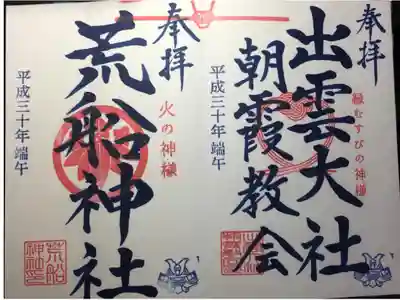 奉拝
縁むすびの神様
出雲大社
朝霞教会
平成三十年端午
奉拝
火の神様
荒船神社
平成三十年端午
荒船
神社印